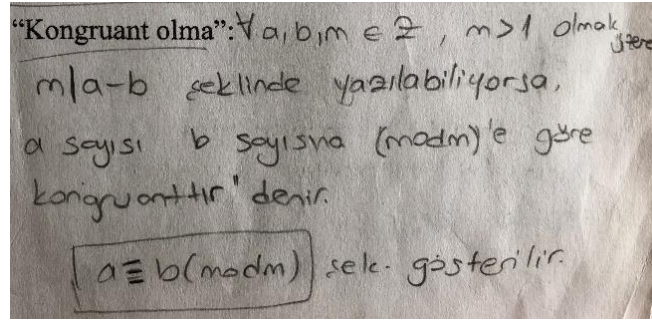 “Kongruant olma”: ∀ a,b,m ∈ Z, m>1 olmak üzere
m|a-b şeklinde yazılabiliyorsa,
a sayısı b sayısına (modm)'e göre
kongruanttır" denir.
a≡b(modm) şek. gösterilir.